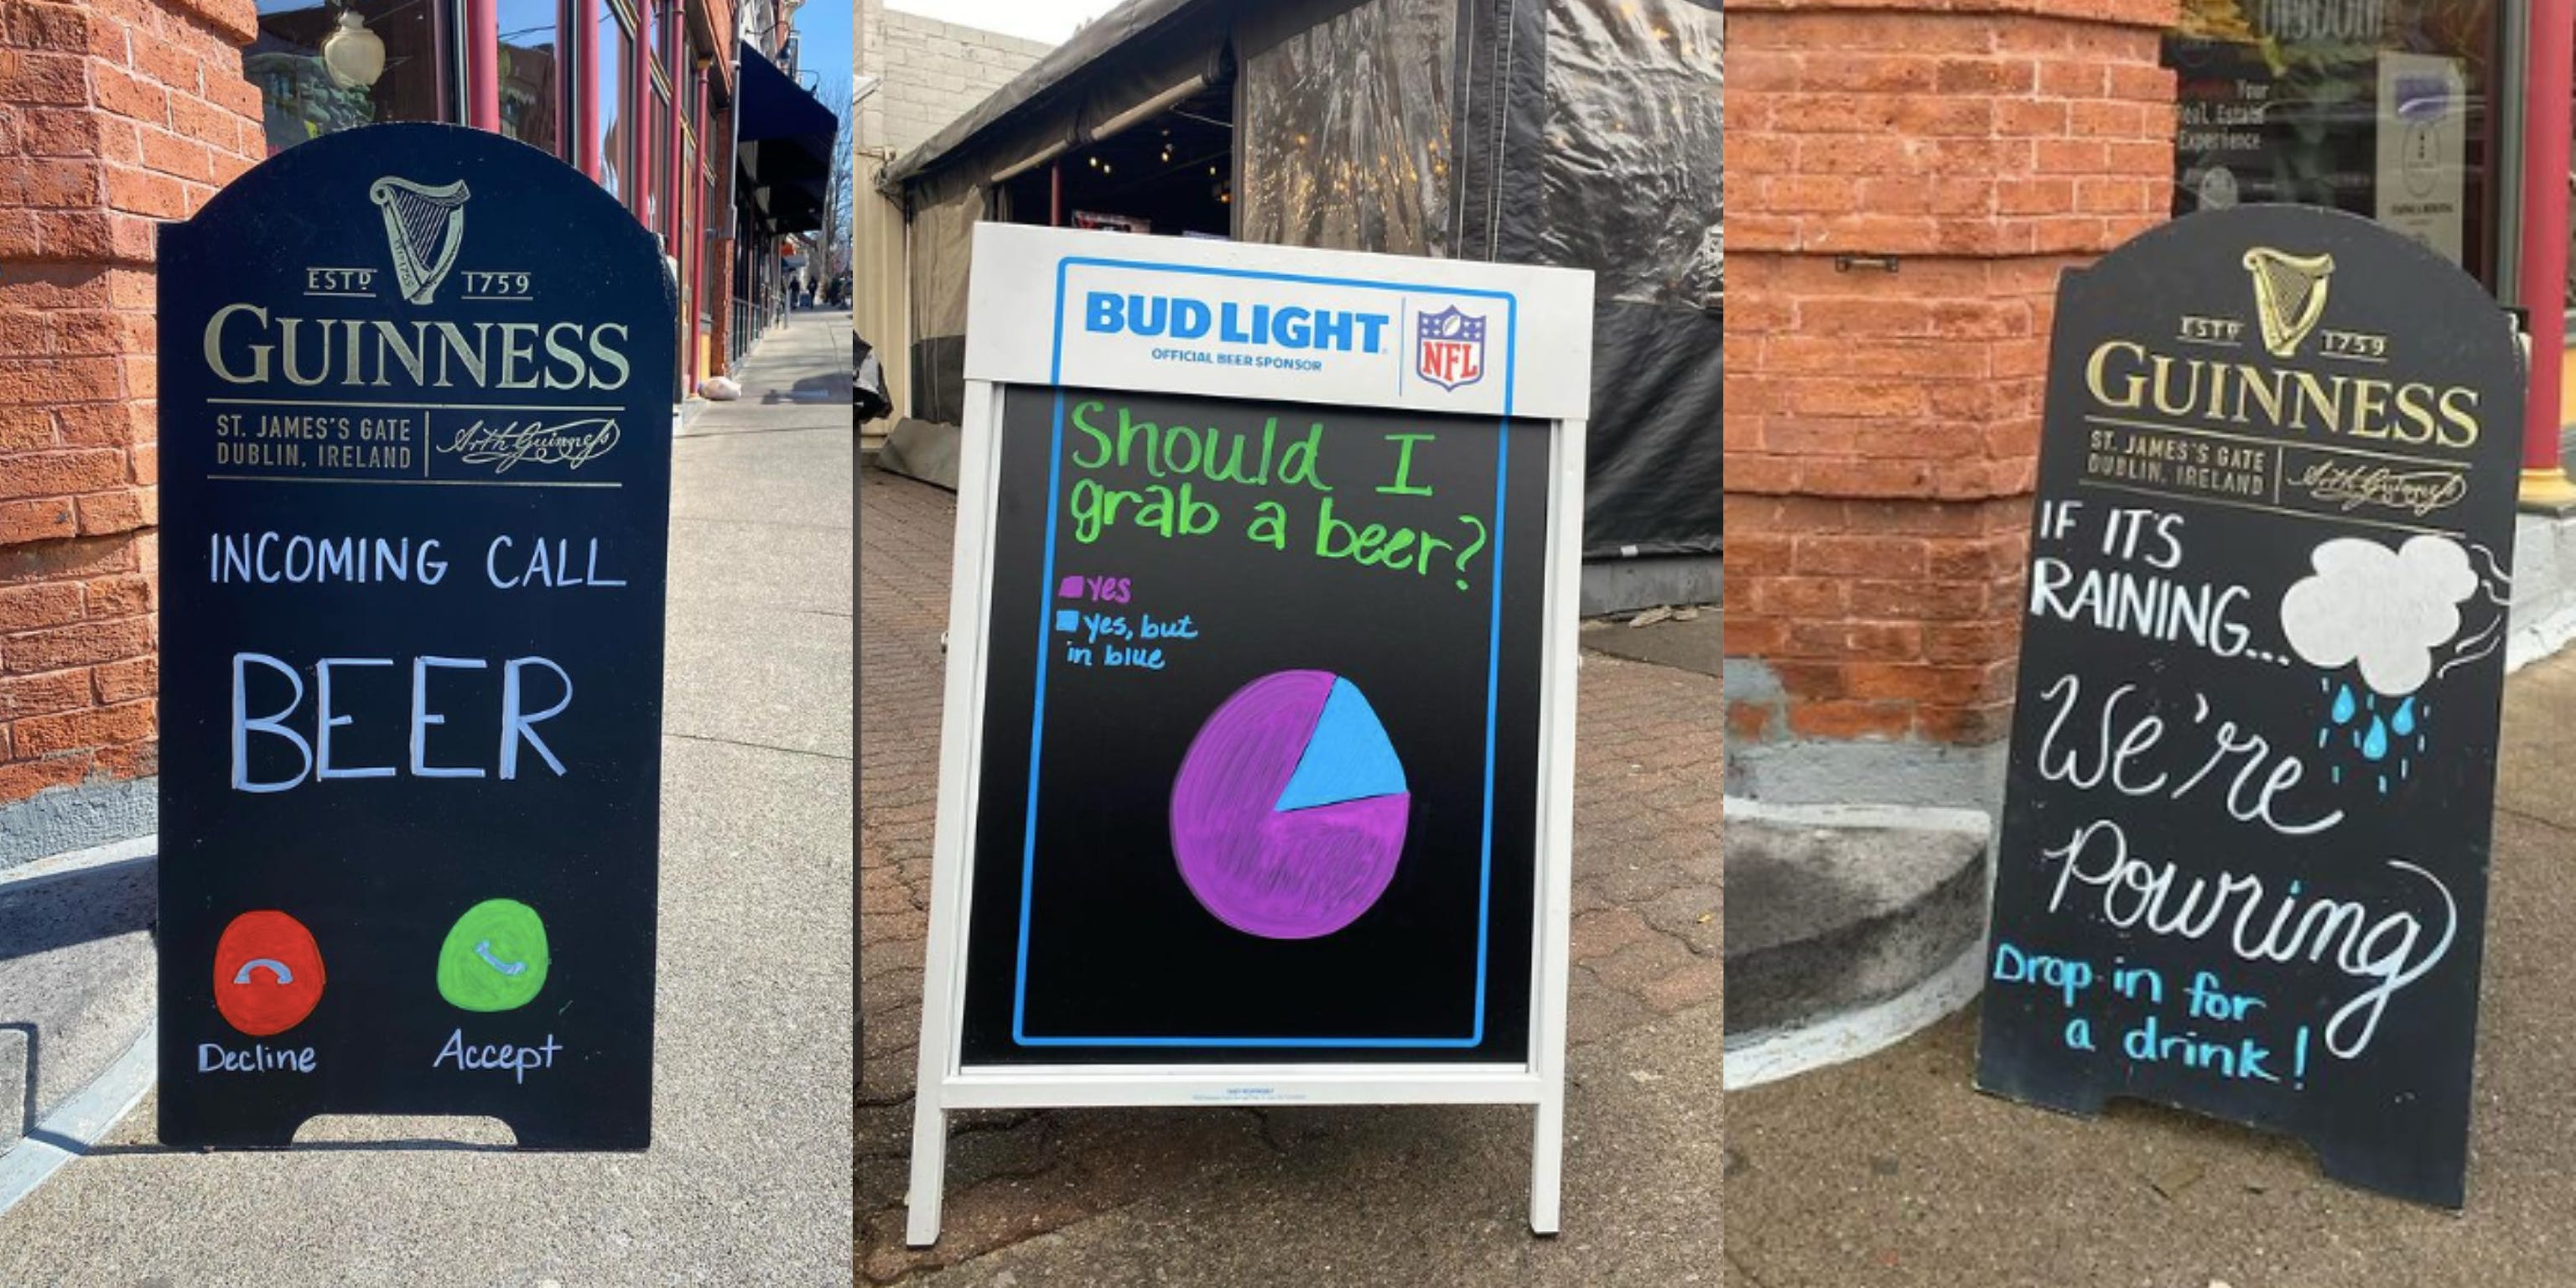 ESTD 1759
GUINNESS
ST. JAMES'S GATE
DUBLIN, IRELAND
Arth Guinness
INCOMING CALL
BEER
Decline Accept
BUD LIGHT
OFFICIAL BEER SPONSOR
NFL
Should I
grab a beer?
yes
yes, but
in blue
Your
Real Estate
Experience
ESTD 1759
GUINNESS
ST. JAMES'S GATE
DUBLIN, IRELAND
Arth Guinness
IF IT'S
RAINING...
We're
Pouring
Drop in for
a drink!